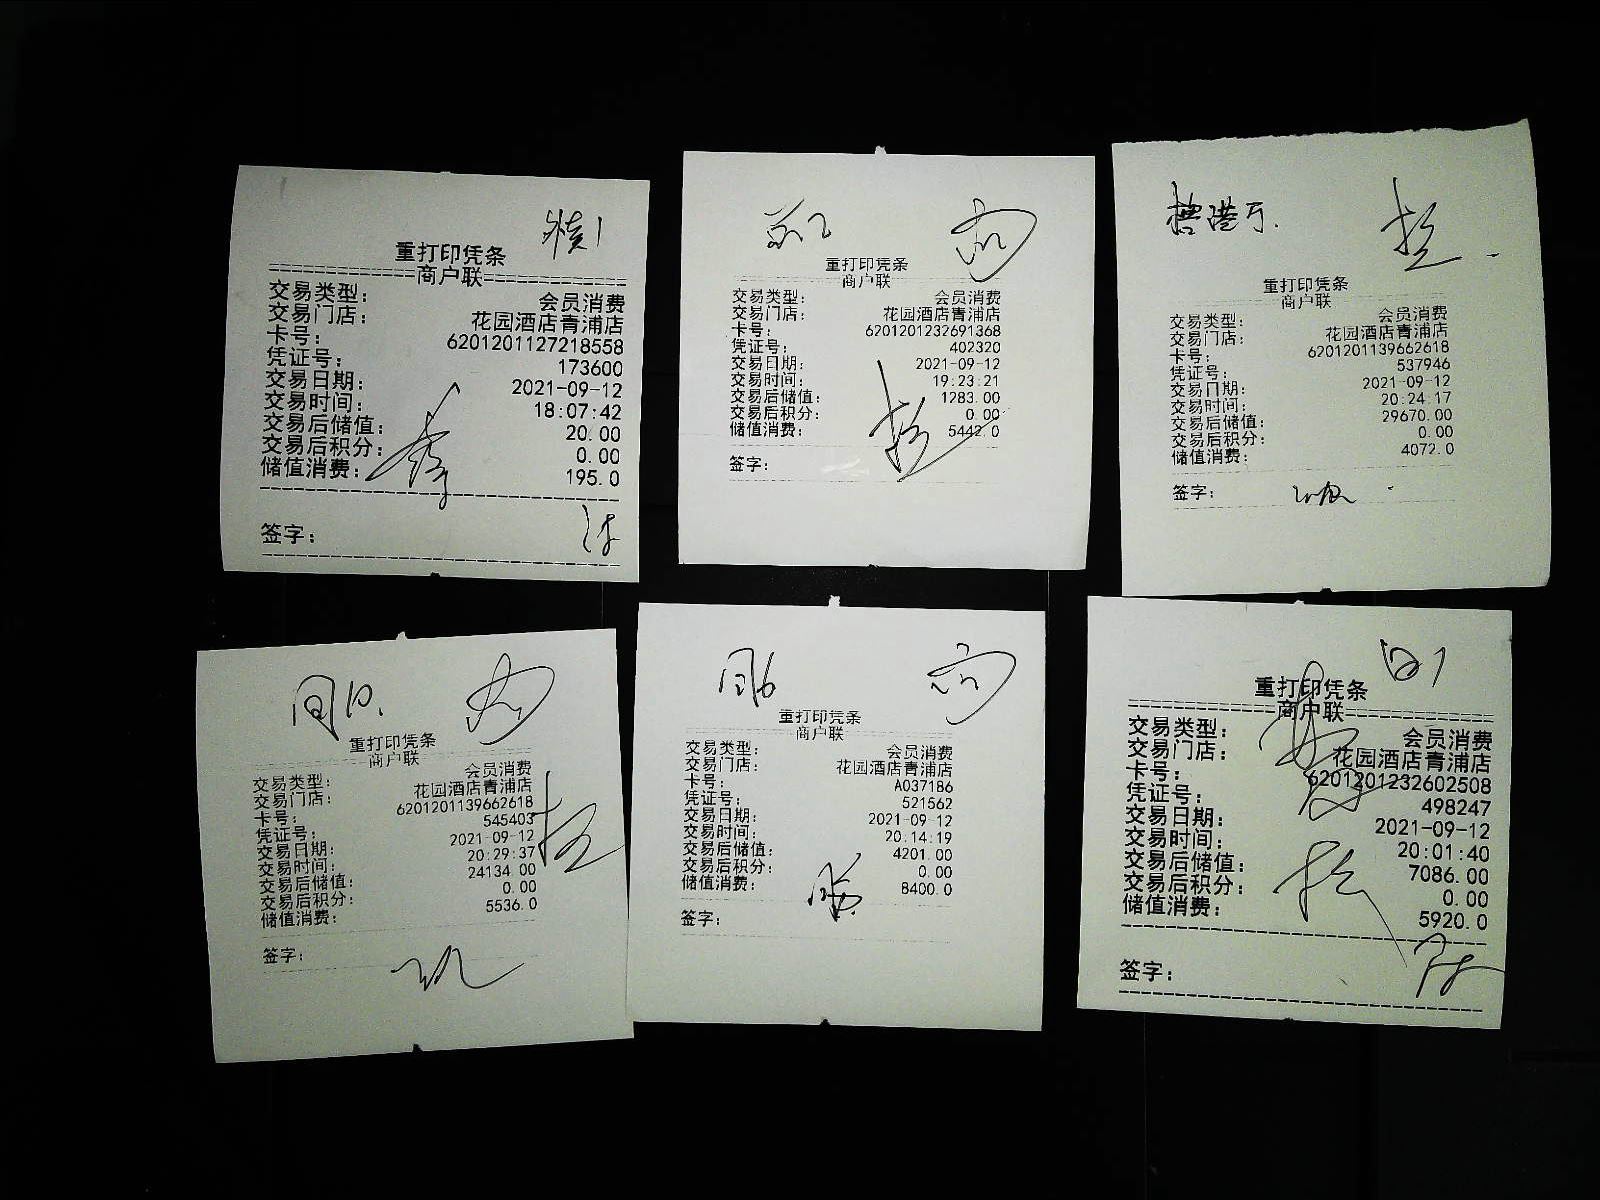 重打印凭条
商户联
交易类型： 会员消费
交易门店： 花园酒店青浦店
卡号： 6201201127218558
凭证号： 173600
交易日期： 2021-09-12
交易时间： 18:07:42
交易后储值： 20.00
交易后积分： 0.00
储值消费： 195.0
签字：
重打印凭条
商户联
交易类型： 会员消费
交易门店： 花园酒店青浦店
卡号： 6201201232691368
凭证号： 402320
交易日期： 2021-09-12
交易时间： 19:23:21
交易后储值： 1283.00
交易后积分： 0.00
储值消费： 5442.0
签字：
重打印凭条
商户联
交易类型： 会员消费
交易门店： 花园酒店青浦店
卡号： 6201201139662618
凭证号： 537946
交易日期： 2021-09-12
交易时间： 20:24:17
交易后储值： 29670.00
交易后积分： 0.00
储值消费： 4072.0
签字：
重打印凭条
商户联
交易类型： 会员消费
交易门店： 花园酒店青浦店
卡号： 6201201139662618
凭证号： 545403
交易日期： 2021-09-12
交易时间： 20:29:37
交易后储值： 24134.00
交易后积分： 0.00
储值消费： 5536.0
签字：
重打印凭条
商户联
交易类型： 会员消费
交易门店： 花园酒店青浦店
卡号： A037186
凭证号： 521562
交易日期： 2021-09-12
交易时间： 20:14:19
交易后储值： 4201.00
交易后积分： 0.00
储值消费： 8400.0
签字：
重打印凭条
商户联
交易类型： 会员消费
交易门店： 花园酒店青浦店
卡号： 6201201232602508
凭证号： 498247
交易日期： 2021-09-12
交易时间： 20:01:40
交易后储值： 7086.00
交易后积分： 0.00
储值消费： 5920.0
签字：